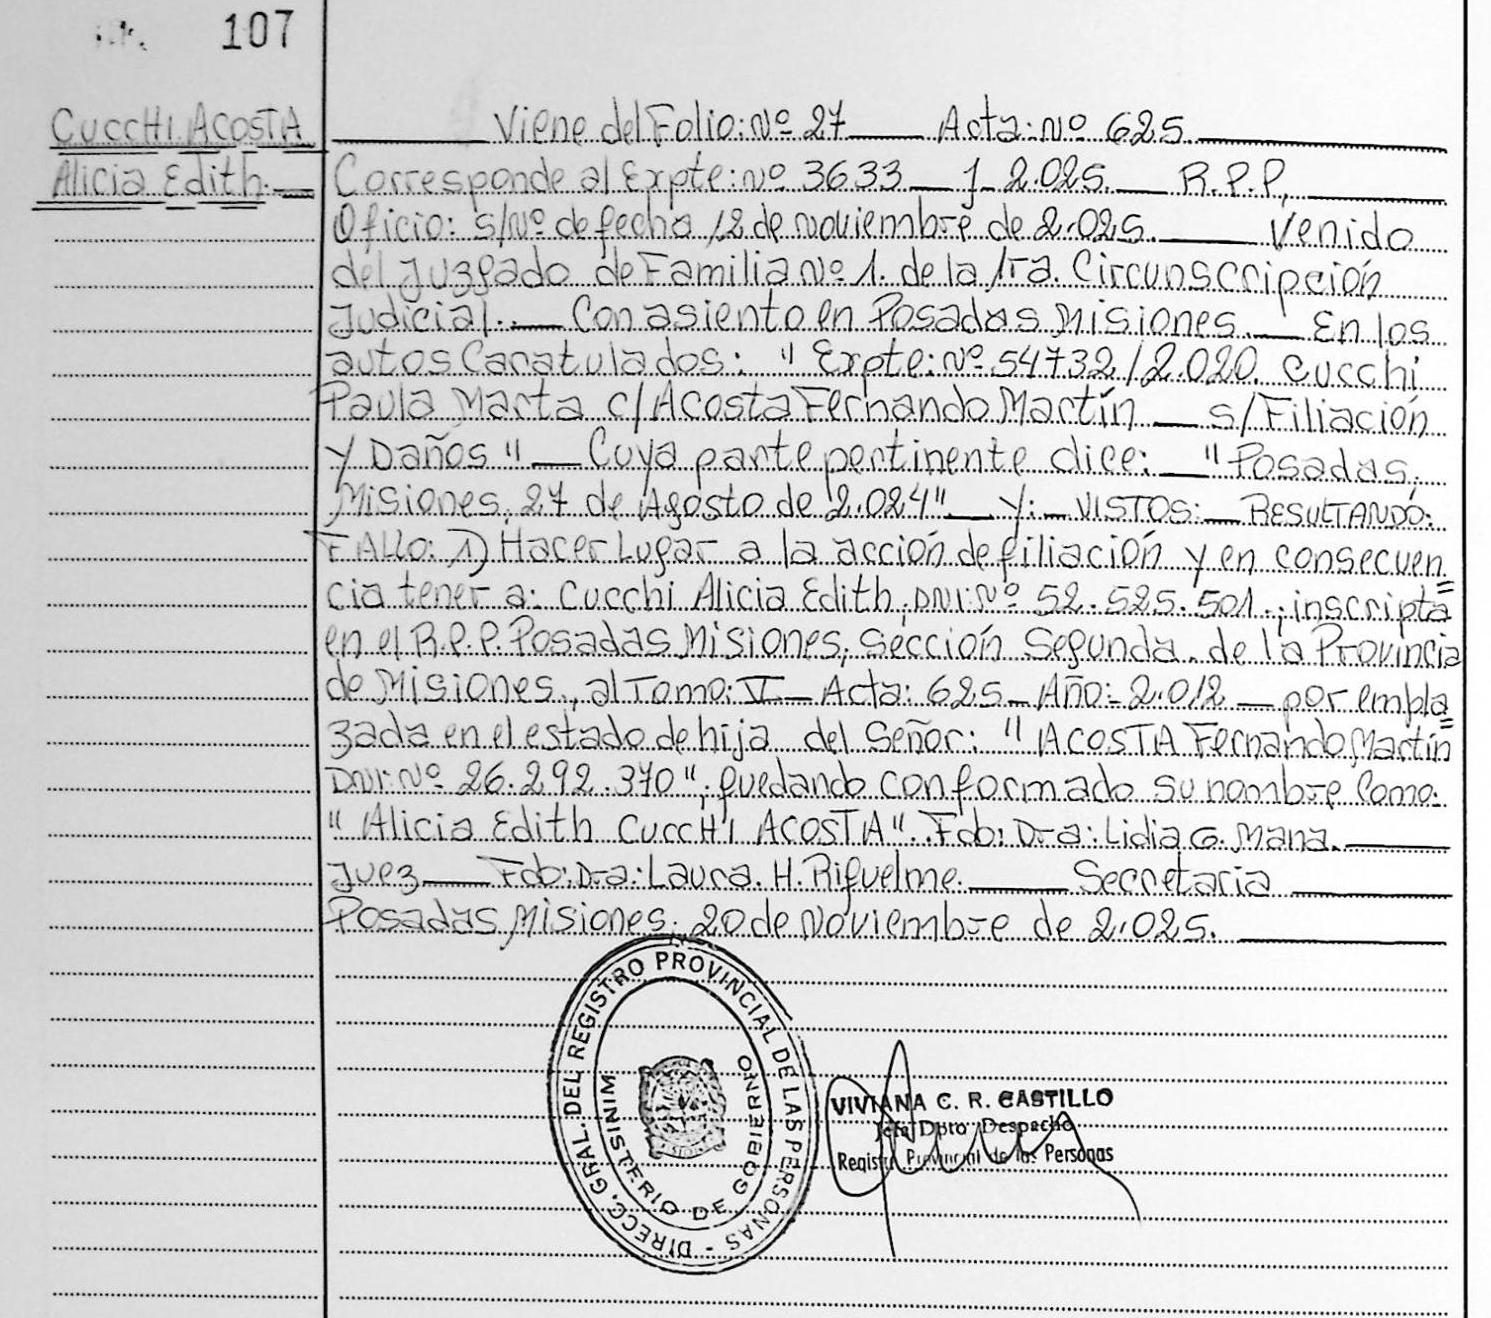 107
CUCCHI ACOSTA
Alicia Edith.
Viene del Folio: Nº 27 Acta: Nº 625
Corresponde al Expte: Nº 3633 J 2.025. R.P.P,
Oficio: S/Nº de fecha 12 de Noviembre de 2.025. Venido
del Juzgado de Familia Nº 1. de la 1ra. Circunscripción
Judicial. Con asiento en Posadas Misiones. En los
autos Caratulados: " Expte: Nº 54732/2.020. Cucchi
Paula Marta c/ Acosta Fernando Martín s/Filiación
y Daños " Cuya parte pertinente dice: "Posadas,
Misiones, 27 de Agosto de 2.024" Y: VISTOS: RESULTANDO:
FALLO: 1) Hacer Lugar a la acción de filiación y en consecuen=
cia tener a: Cucchi Alicia Edith, DNI: Nº 52.525.501., inscripta
en el R.P.P. Posadas Misiones, Sección Segunda, de la Provincia
de Misiones, al Tomo: VI Acta: 625 Año: 2.012 por empla=
zada en el estado de hija del Señor: " ACOSTA Fernando Martín
DNI: Nº 26.292.370", quedando conformado su nombre Como:
" Alicia Edith CUCCHI ACOSTA". Fdo: Dra: Lidia G. Mana.
Juez Fdo: Dra: Laura. H. Riquelme. Secretaria
Posadas Misiones, 20 de Noviembre de 2.025.
DIRECC. GRAL. DEL REGISTRO PROVINCIAL DE LAS PERSONAS -
MINISTERIO DE GOBIERNO
VIVIANA C. R. CASTILLO
Jefa Dpto Despacho
Registro Provincial de las Personas